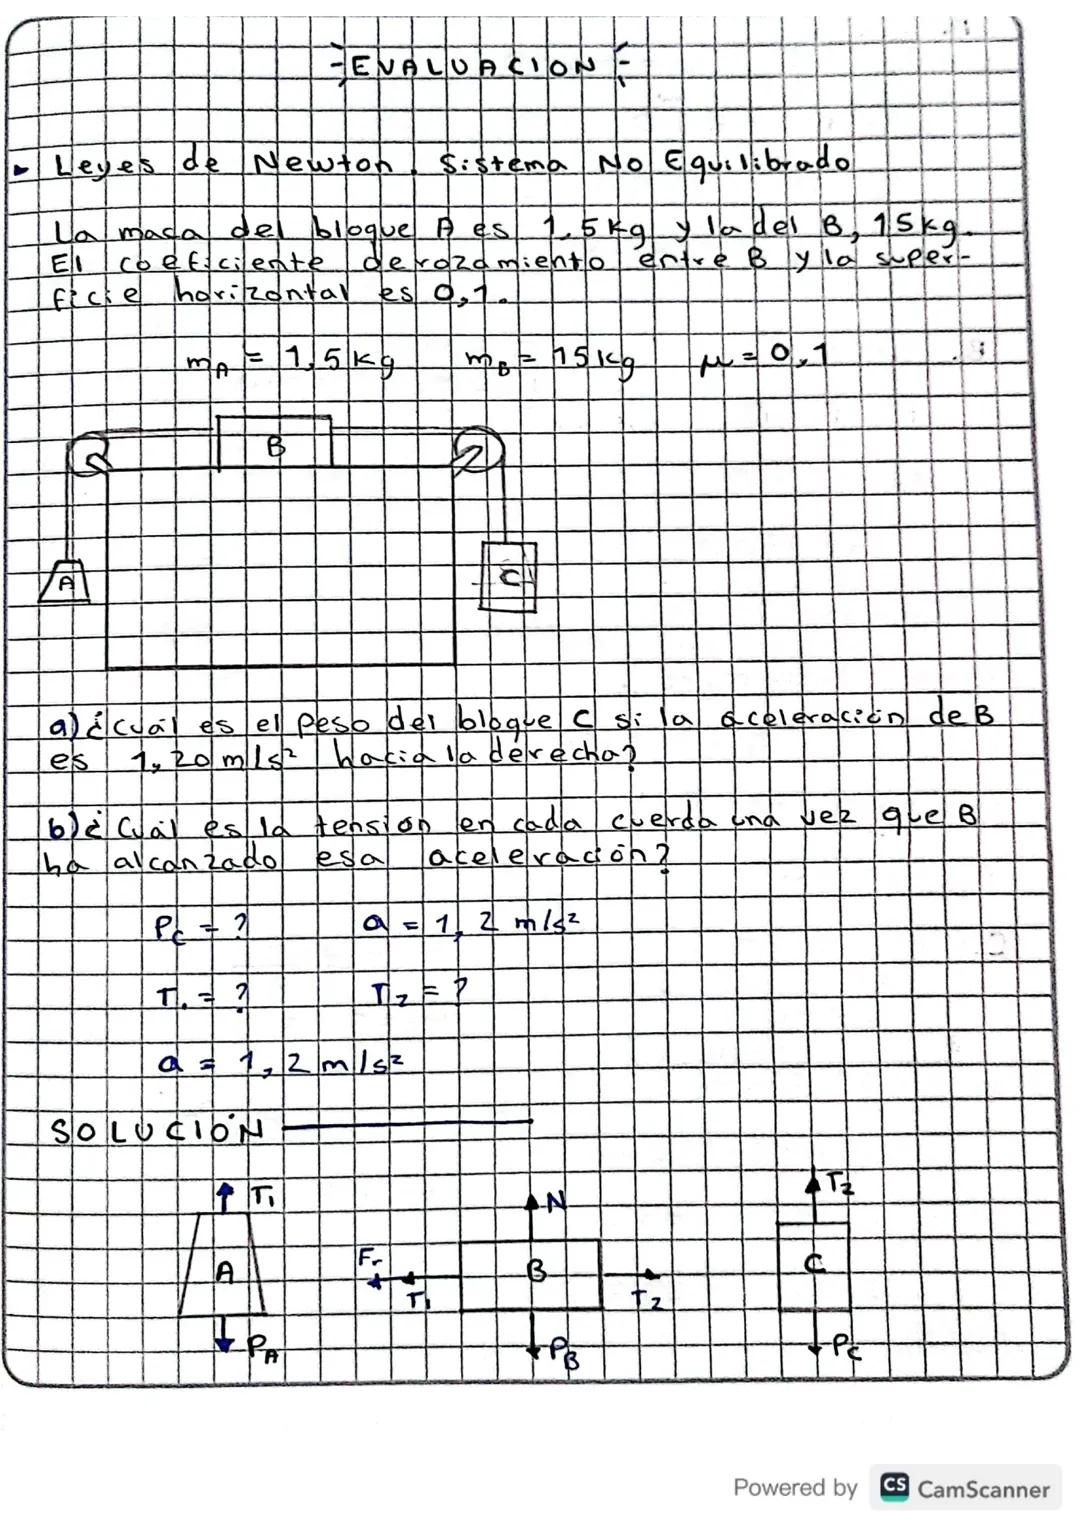 EVALUACION
Leyes de Newton. Sistema No Equilibrado
La masa del bloque A es 1,5kg y la del B, 15kg.
El coeficiente de rozamiento entre B y la super-
ficie horizontal es 0,1.
mA = 1,5kg mB = 15kg μ = 0,1
B
A
C
a) ¿cuál es el peso del bloque C si la aceleración de B
es 1,20 m/s² hacia la derecha?
b) ¿Cuál es la tensión en cada cuerda una vez que B
ha alcanzado esa aceleración?
Pc = ? a = 1,2 m/s²
T1 = ? T2 = ?
a = 1,2 m/s²
SOLUCIÓN
T1 N T2
A Fr T1 B T2 C
PA PB Pc
Powered by CS CamScanner